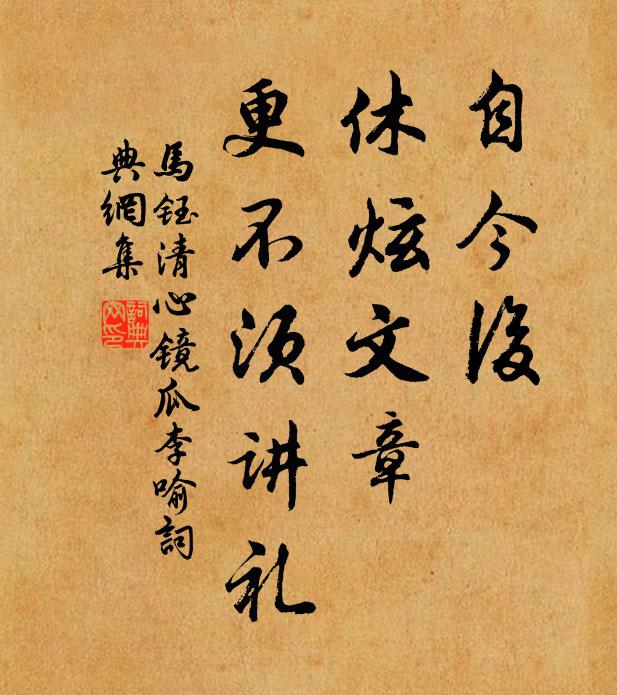 自今後
休炫文章
更不须讲礼
馬鈺清心镜瓜李喻詞
典網集
詞典
网印